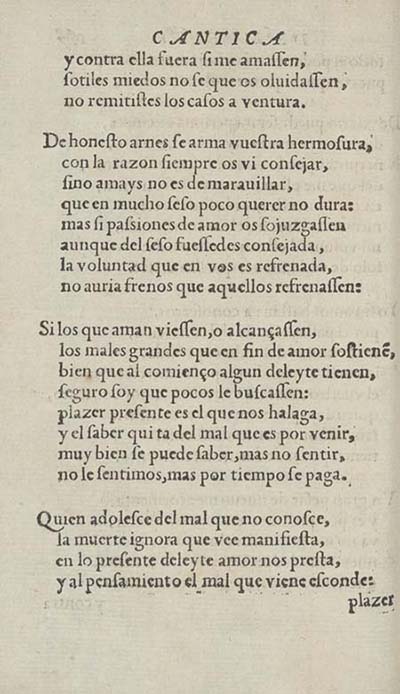 CANTICA
y contra ella fuera si me amassen,
sotiles miedos no se que os oluidassen,
no remitistes los casos a ventura.
De honesto arnes se arma vuestra hermosura,
con la razon siempre os vi consejar,
sino amays no es de marauillar,
que en mucho seso poco querer no dura:
mas si passiones de amor os sojuzgassen
aunque del seso fuessedes consejada,
la voluntad que en vos es refrenada,
no auria frenos que aquellos refrenassen:
Si los que aman viessen, o alcançassen,
los males grandes que en fin de amor sostienẽ,
bien que al comienço algun deleyte tienen,
seguro soy que pocos le buscassen:
plazer presente es el que nos halaga,
y el saber quita del mal que es por venir,
muy bien se puede saber, mas no sentir,
no le sentimos, mas por tiempo se paga.
Quien adolesce del mal que no conosce,
la muerte ignora que vee manifiesta,
en lo presente deleyte amor nos presta,
y al pensamiento el mal que viene esconde:
plazer